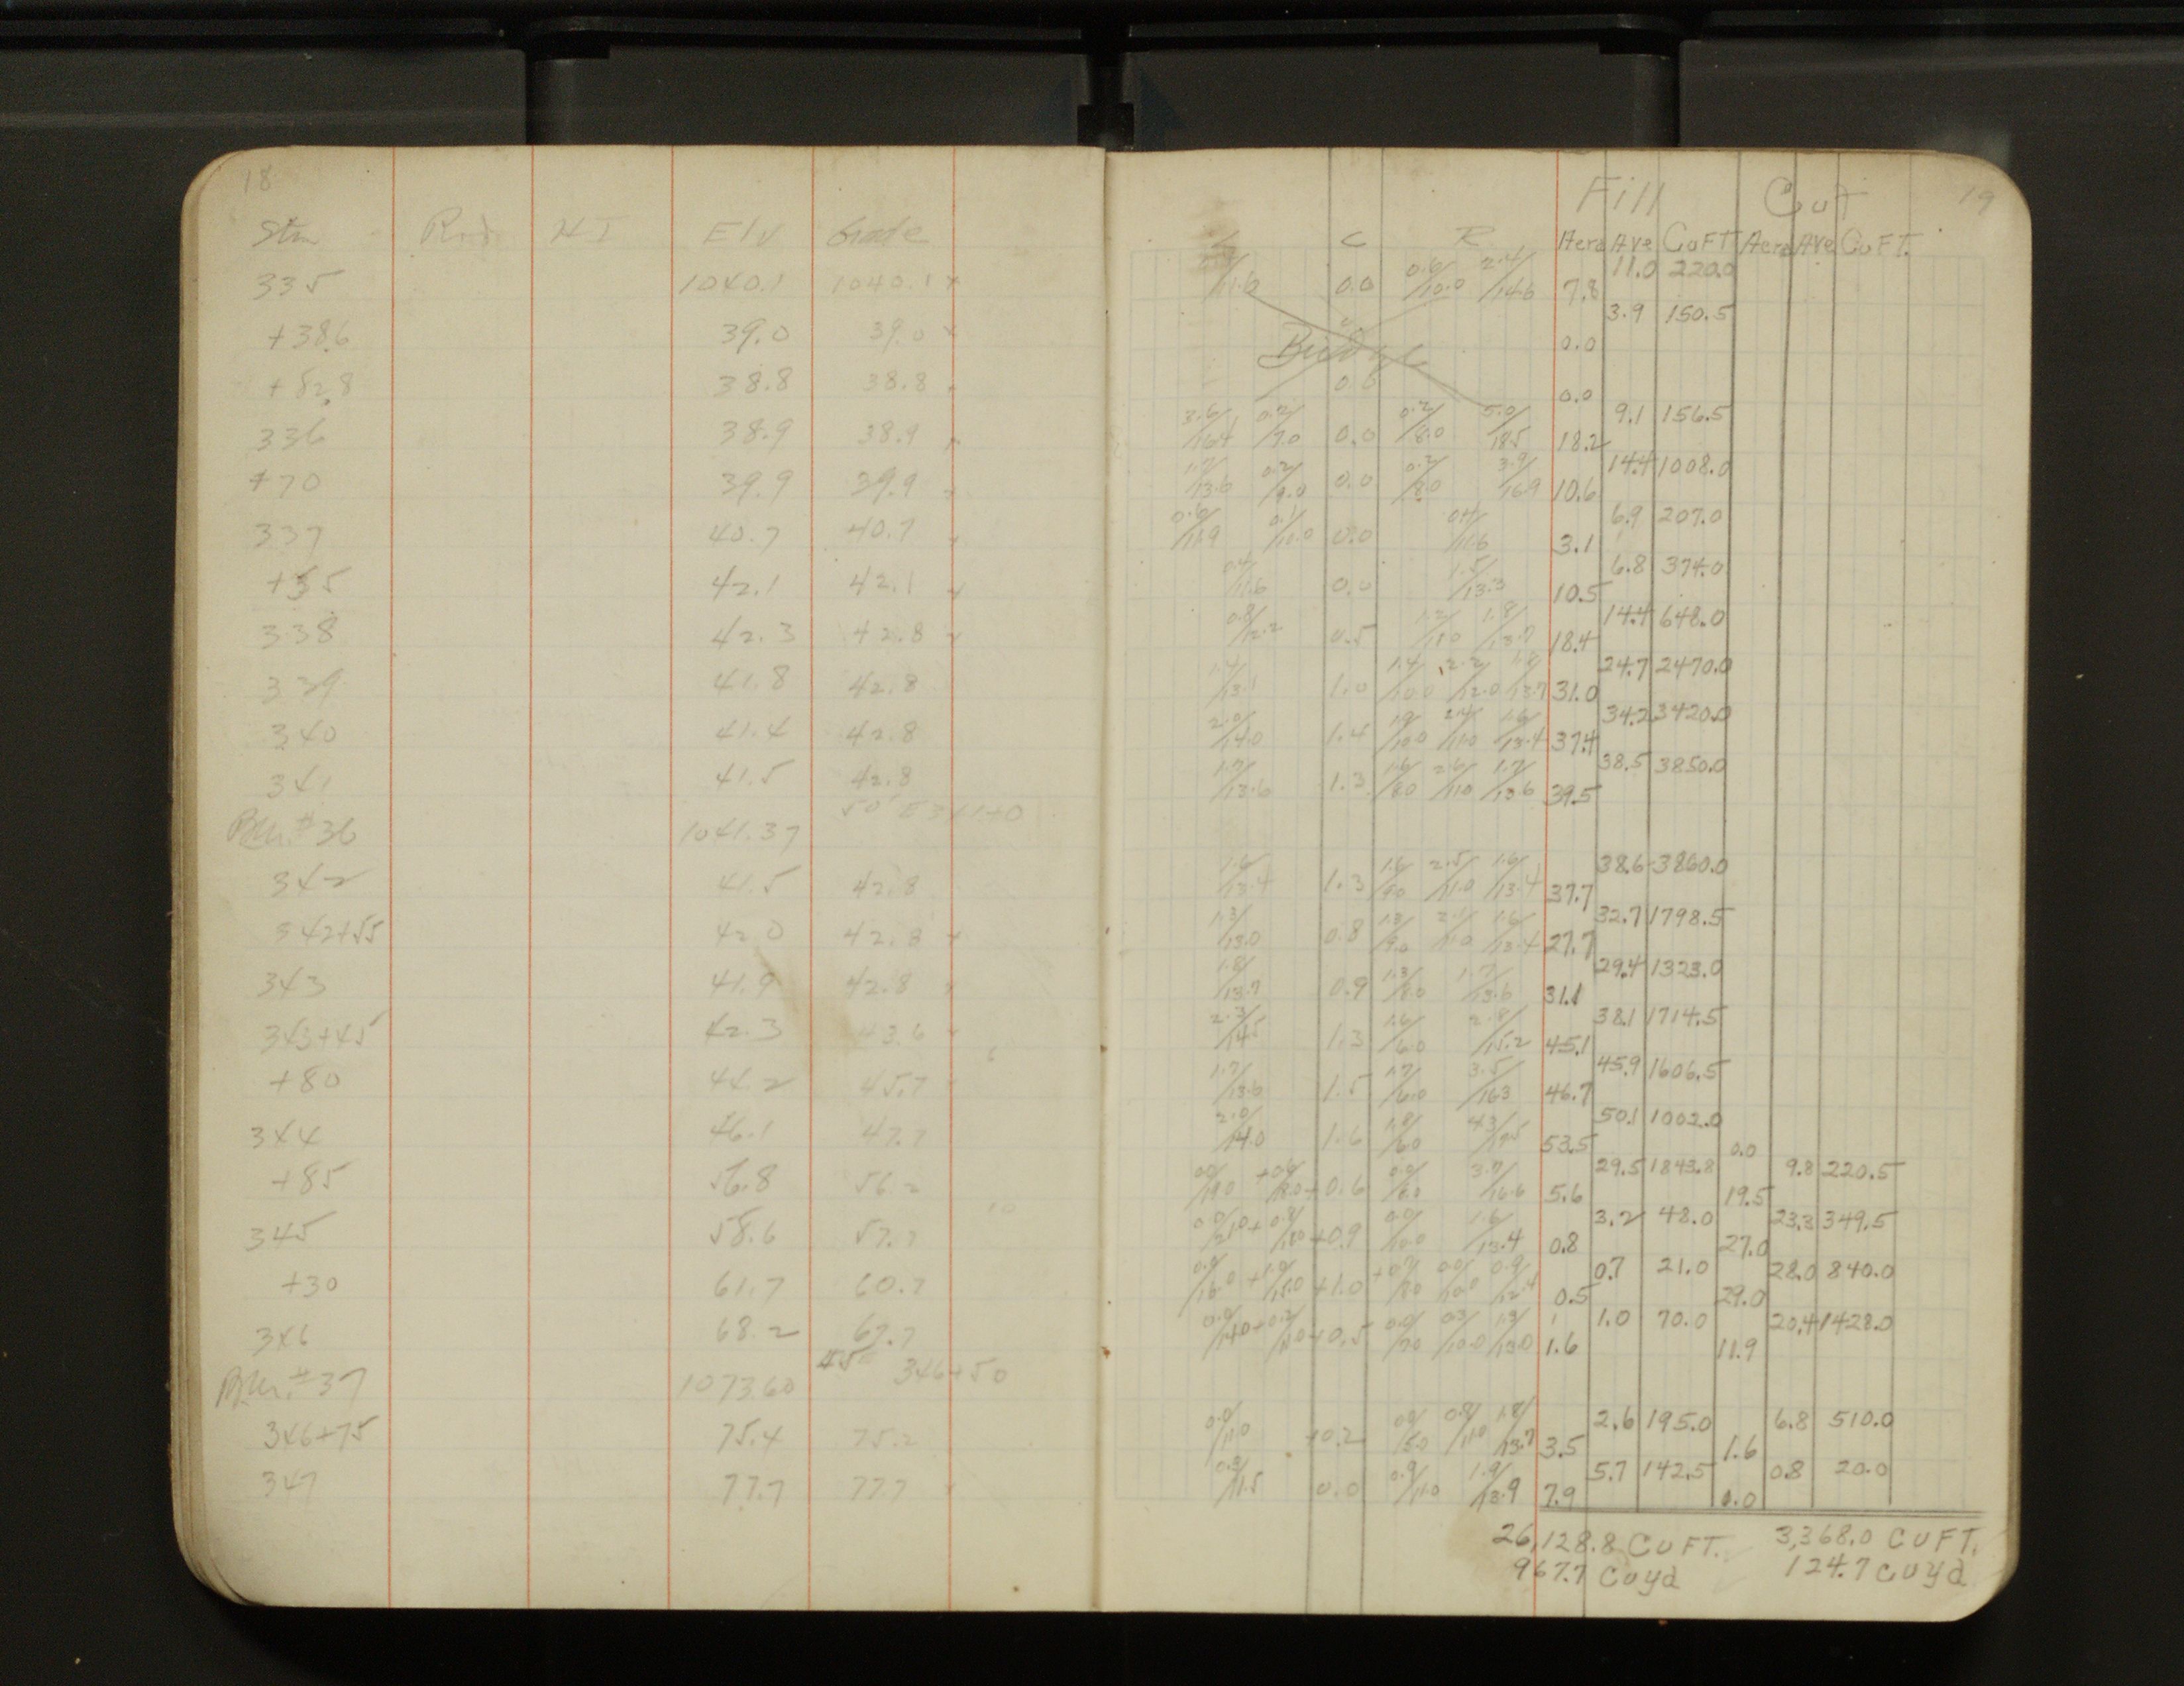 18
Sta Rod HI Elv Grade
335 1040.1 1040.1
+38.6 39.0 39.0
+52.8 38.8 38.8
336 38.9 38.9
+70 39.9 39.9
337 40.7 40.7
+55 42.1 42.1
338 42.3 42.8
339 41.8 42.8
340 41.4 42.8
341 41.5 42.8
BM #36 1041.37
342 41.5 42.8
342+55 42.0 42.8
343 41.9 42.8
343+45 42.3 43.6
+80 44.2 45.7
344 46.1 47.7
+85 56.8 56.2
345 58.6 57.7
+30 61.7 60.7
346 68.2 67.7
BM #37 1073.60 45 346+50
346+75 75.4 75.2
347 77.7 77.7
19
Fill Cut
L C R Aera Ave CuFT Aera Ave CuFT.
11.0 220.0
/11.6 0.0 0.6/10.0 2.4/14.6 7.8
3.9 150.5
Bridge 0.0
0.0 0.0
9.1 156.5
3.6/16.4 0.2/9.0 0.0 0.2/8.0 5.0/18.5 18.2
14.4 1008.0
1.7/13.6 0.2/9.0 0.0 0.2/8.0 3.9/16.9 10.6
6.9 207.0
0.6/11.9 0.1/11.0 0.0 0.4/11.6 3.1
6.8 374.0
0.4/11.6 0.0 1.5/13.3 10.5
14.4 648.0
0.8/12.2 0.5 1.2/11.0 1.8/13.7 18.4
24.7 2470.0
1.4/13.1 1.0 1.4/10.0 2.2/12.0 1.8/13.7 31.0
34.2 3420.0
2.0/14.0 1.4 1.9/10.0 2.4/11.0 1.6/13.4 37.4
38.5 3850.0
1.7/13.6 1.3 1.6/8.0 2.6/11.0 1.7/13.6 39.5
38.6 3860.0
1.6/13.4 1.3 1.6/9.0 2.5/11.0 1.6/13.4 37.7
32.7 1798.5
1.3/13.0 0.8 1.3/9.0 2.1/11.0 1.6/13.4 27.7
29.4 1323.0
1.8/13.7 0.9 1.3/8.0 1.7/13.6 31.1
38.1 1714.5
2.3/14.5 1.3 1.6/6.0 2.8/15.2 45.1
45.9 1606.5
1.7/13.6 1.5 1.7/6.0 3.5/16.3 46.7
50.1 1002.0
2.0/14.0 1.6 1.8/6.0 4.3/17.5 53.5 0.0
29.5 1843.8 9.8 220.5
0.0/19.0 +0.6/18.0 +0.6 0.0/8.0 3.7/16.6 5.6 19.5
3.2 48.0 23.3 349.5
0.0/21.0 +0.8/18.0 +0.9 0.0/10.0 1.6/13.4 0.8 27.0
0.7 21.0 28.0 840.0
0.0/16.0 +1.0/15.0 +1.0 +0.7/8.0 0.0/10.0 0.9/12.4 0.5 29.0
1.0 70.0 20.4 1428.0
0.0/14.0 +0.5 0.0/7.0 0.3/10.0 1.3/13.0 1.6 11.9
2.6 195.0 6.8 510.0
0.0/11.0 +0.2 0.0/5.0 0.8/11.0 1.8/13.7 3.5 1.6
5.7 142.5 0.8 20.0
0.3/11.5 0.0 0.9/11.0 1.9/13.9 7.9 0.0
26,128.8 CuFT. 3,368.0 CUFT.
967.7 Cuyd 124.7 cuyd